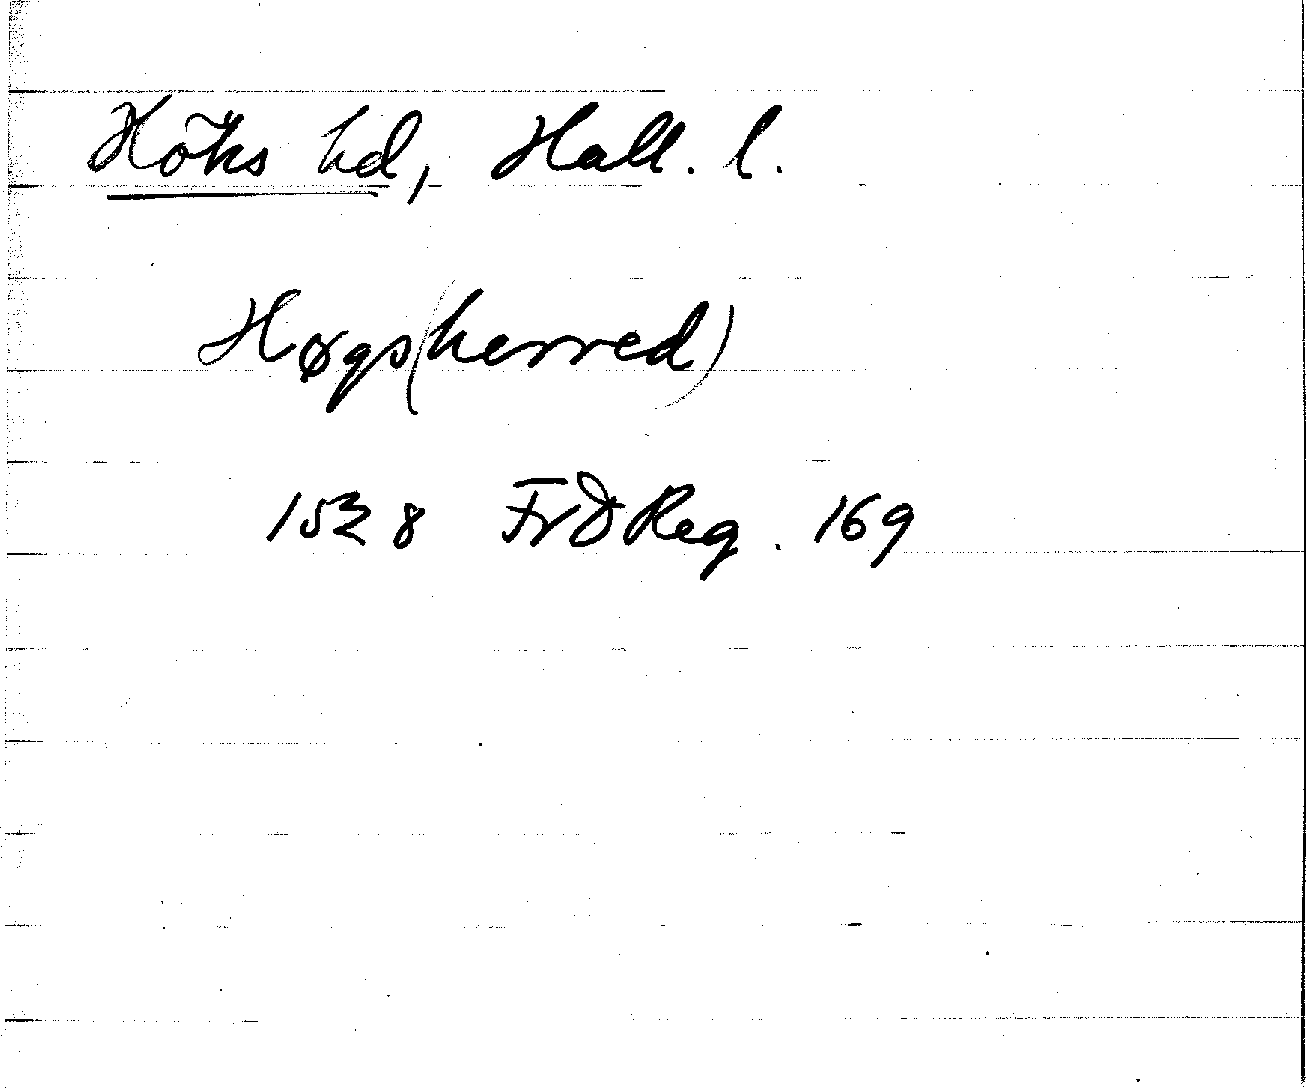 Höks hd, Hall. l.
Høgs(herred)
1528 FrDReg. 169